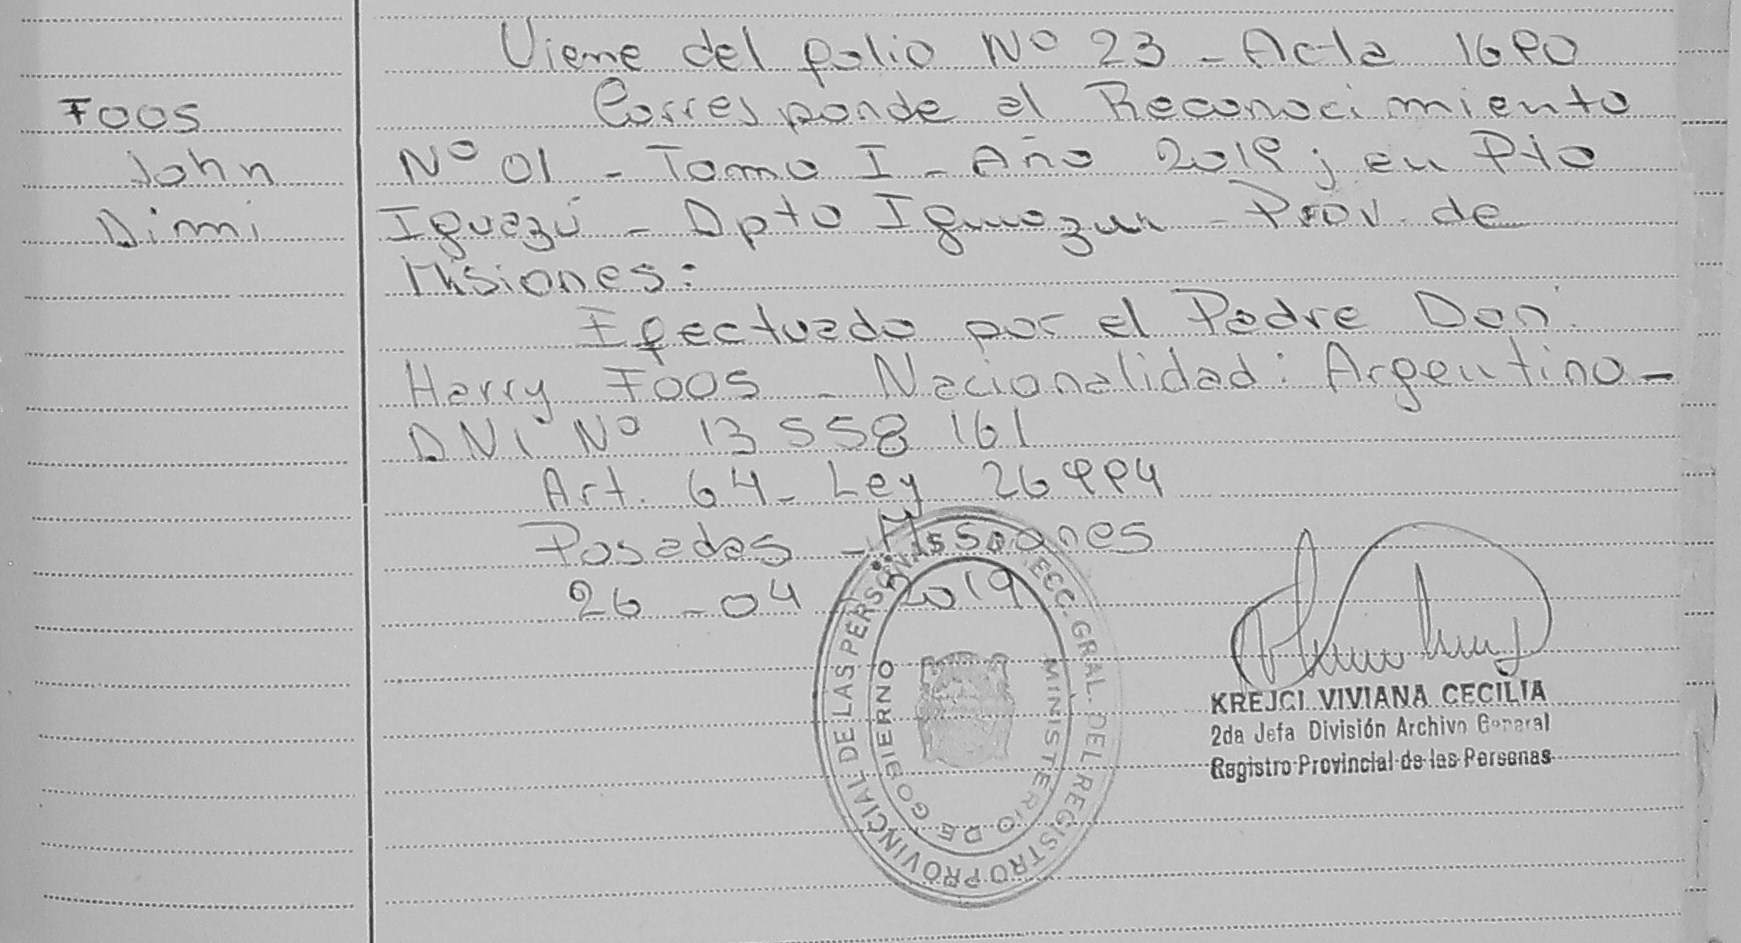 Viene del folio Nº 23 - Acta 1690
Foos
Corresponde al Reconocimiento
John
Nº 01 - Tomo I - Año 2019; en Pto
Dimi
Iguazú - Dpto Iguazú - Prov. de
Misiones:
Efectuado por el Padre Don:
Harry Foos - Nacionalidad: Argentino -
DNI Nº 13 558 161
Art. 64 - Ley 26994
Posadas - Misiones
26 - 04 - 2019
DIRECC. GRAL. DEL REGISTRO PROVINCIAL DE LAS PERSONAS
MINISTERIO DE GOBIERNO
KREJCI VIVIANA CECILIA
2da Jefa División Archivo General
Registro Provincial de las Personas